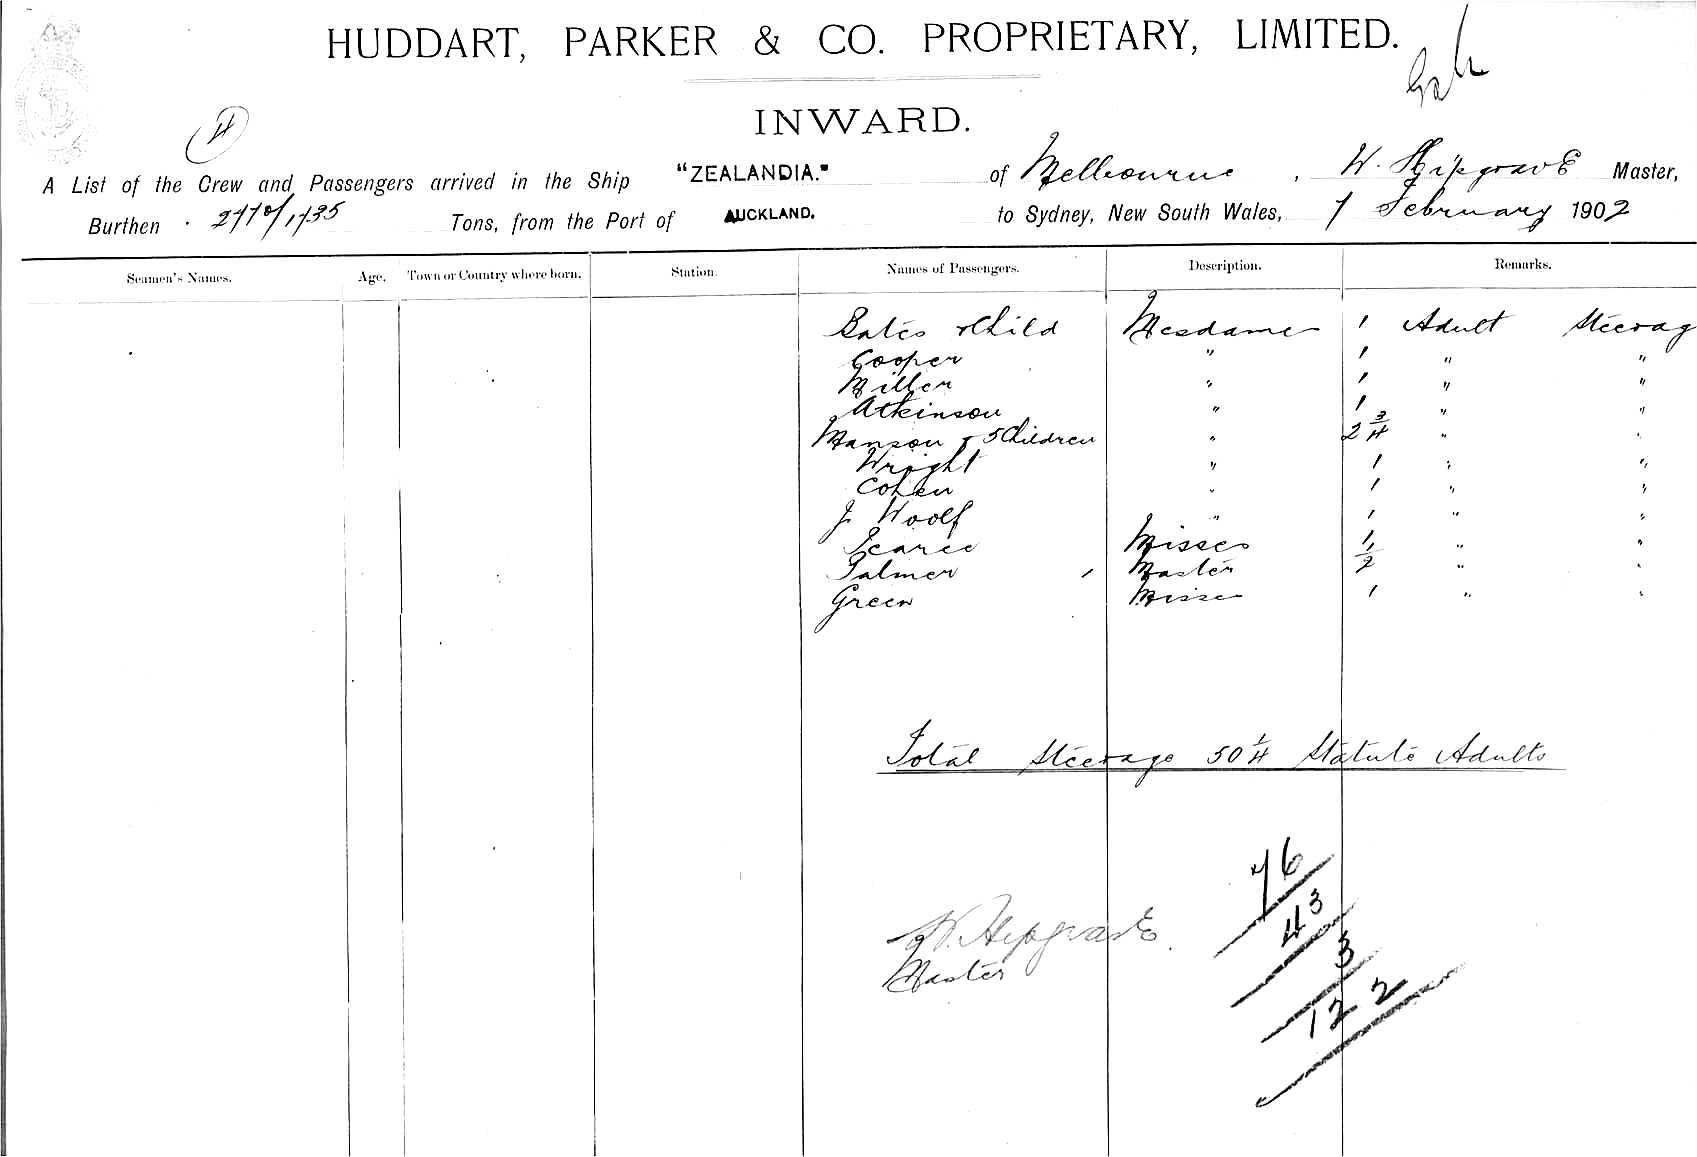 HUDDART, PARKER & CO. PROPRIETARY, LIMITED.
INWARD.
4
A List of the Crew and Passengers arrived in the Ship "ZEALANDIA." of Melbourne, W. Hipgrave Master,
Burthen 2770/1735 Tons, from the Port of AUCKLAND. to Sydney, New South Wales, 7 February 1902
Seamen's Names. Age. Town or Country where born. Station. Names of Passengers. Description. Remarks.
Bates & Child Mesdames 1 Adult Steerag
Cooper " 1 " "
Miller " 1 " "
Atkinson " 1 " "
Manson & 5 Children " 2 3/4 " "
Wright " 1 " "
Cohen " 1 " "
J Woolf " 1 " "
Scarce Misses 1 " "
Palmer Master 1/2 " "
Green Misses 1 " "
Total Steerage 50 1/4 Statute Adults
76
43
3
122
W. Hipgrave
Master